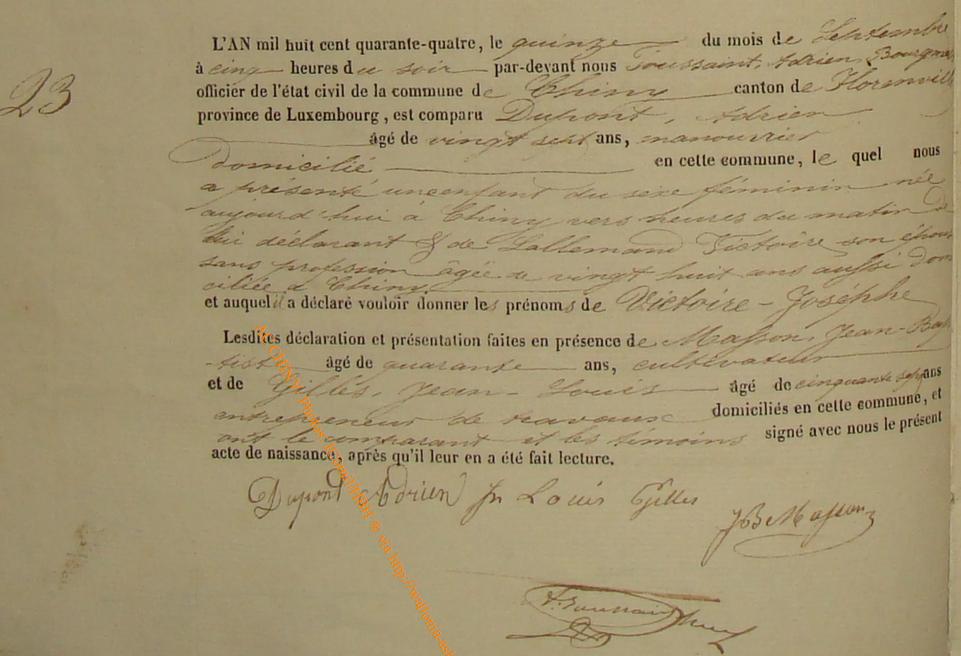 23
L'AN mil huit cent quarante-quatre, le quinze du mois de Septembre
à cinq heures du soir par-devant nous Toussaint, Adrien, Bourgme
officier de l'état civil de la commune de Chiny canton de Florenville
province de Luxembourg, est comparu Dupont, Adrien
âgé de vingt sept ans, manouvrier
domicilié en cette commune, le quel nous
a présenté un enfant du sexe féminin née
aujourd'hui à Chiny vers heures du matin de
lui déclarant & de Lallemand Victoire son épouse
sans profession âgée de vingt huit ans aussi domi
ciliée à Chiny
et auquel il a déclaré vouloir donner les prénoms de Victoire-Joséphe
Lesdites déclaration et présentation faites en présence de Masson, Jean-Bap
-tist âgé de quarante ans, cultivateur
et de Gilles, Jean-Louis âgé de cinquante sept ans
entrepreneur de travaux domiciliés en cette commune, et
ont le comparant et les témoins signé avec nous le présent
acte de naissance, après qu'il leur en a été fait lecture.
Dupont Adrien Jn Louis Gilles
JB Masson
A. Toussaint